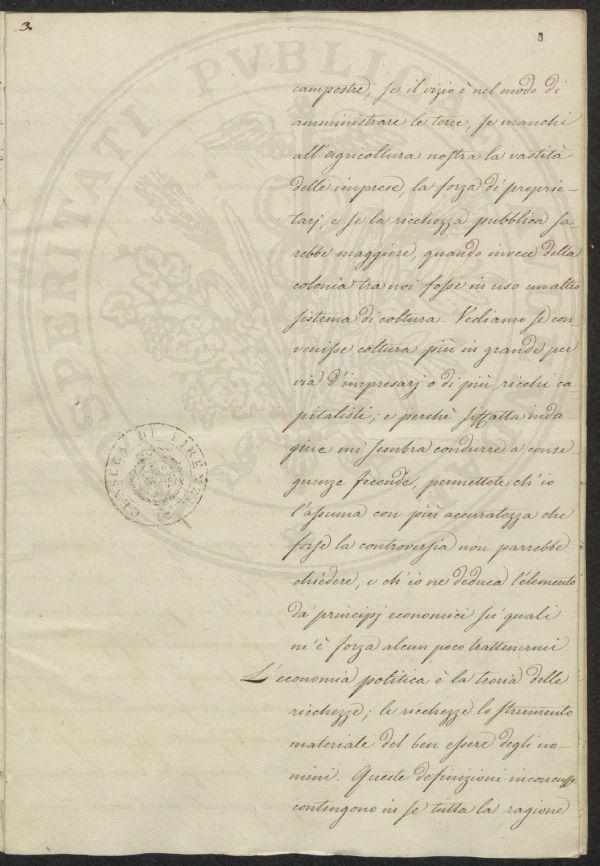 3.
3
campestre, se il vizio è nel modo di
amministrare le terre, se manchi
all'agricoltura nostra la vastità
delle imprese, la forza di proprie-
tarj, e se la ricchezza pubblica sa-
rebbe maggiore, quando invece della
colonia tra noi fosse in uso un altro
sistema di coltura. Vediamo se con-
venisse coltura più in grande per
via d'impresarj o di più ricchi ca-
pitalisti; e perchè siffatta inda
gine mi sembra condurre a conse-
guenze feconde, permettete ch'io
l'assuma con più accuratezza che
forse la controversia non parrebbe
chiedere, e ch'io ne deduca l'elemento
da' principj economici su' quali
m'è forza alcun poco trattenermi
L'economia politica è la teoria delle
ricchezze; le ricchezze lo strumento
materiale del ben essere degli uo-
mini. Queste definizioni inconcusse
contengono in se tutta la ragione
PROSPERITATI PVBLICAE
DI FIRENZE